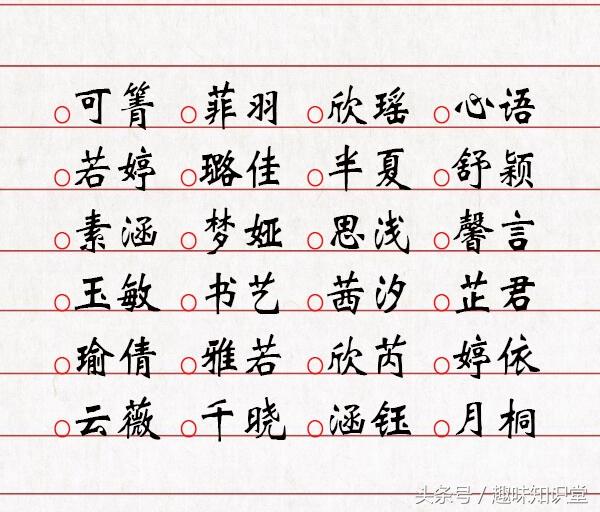 ○可箐 ○菲羽 ○欣瑶 ○心语
○若婷 ○璐佳 ○半夏 ○舒颖
○素涵 ○梦娅 ○思浅 ○馨言
○玉敏 ○书艺 ○茜汐 ○芷君
○瑜倩 ○雅若 ○欣芮 ○婷依
○云薇 ○千晓 ○涵钰 ○月桐
头条号／趣味知识堂